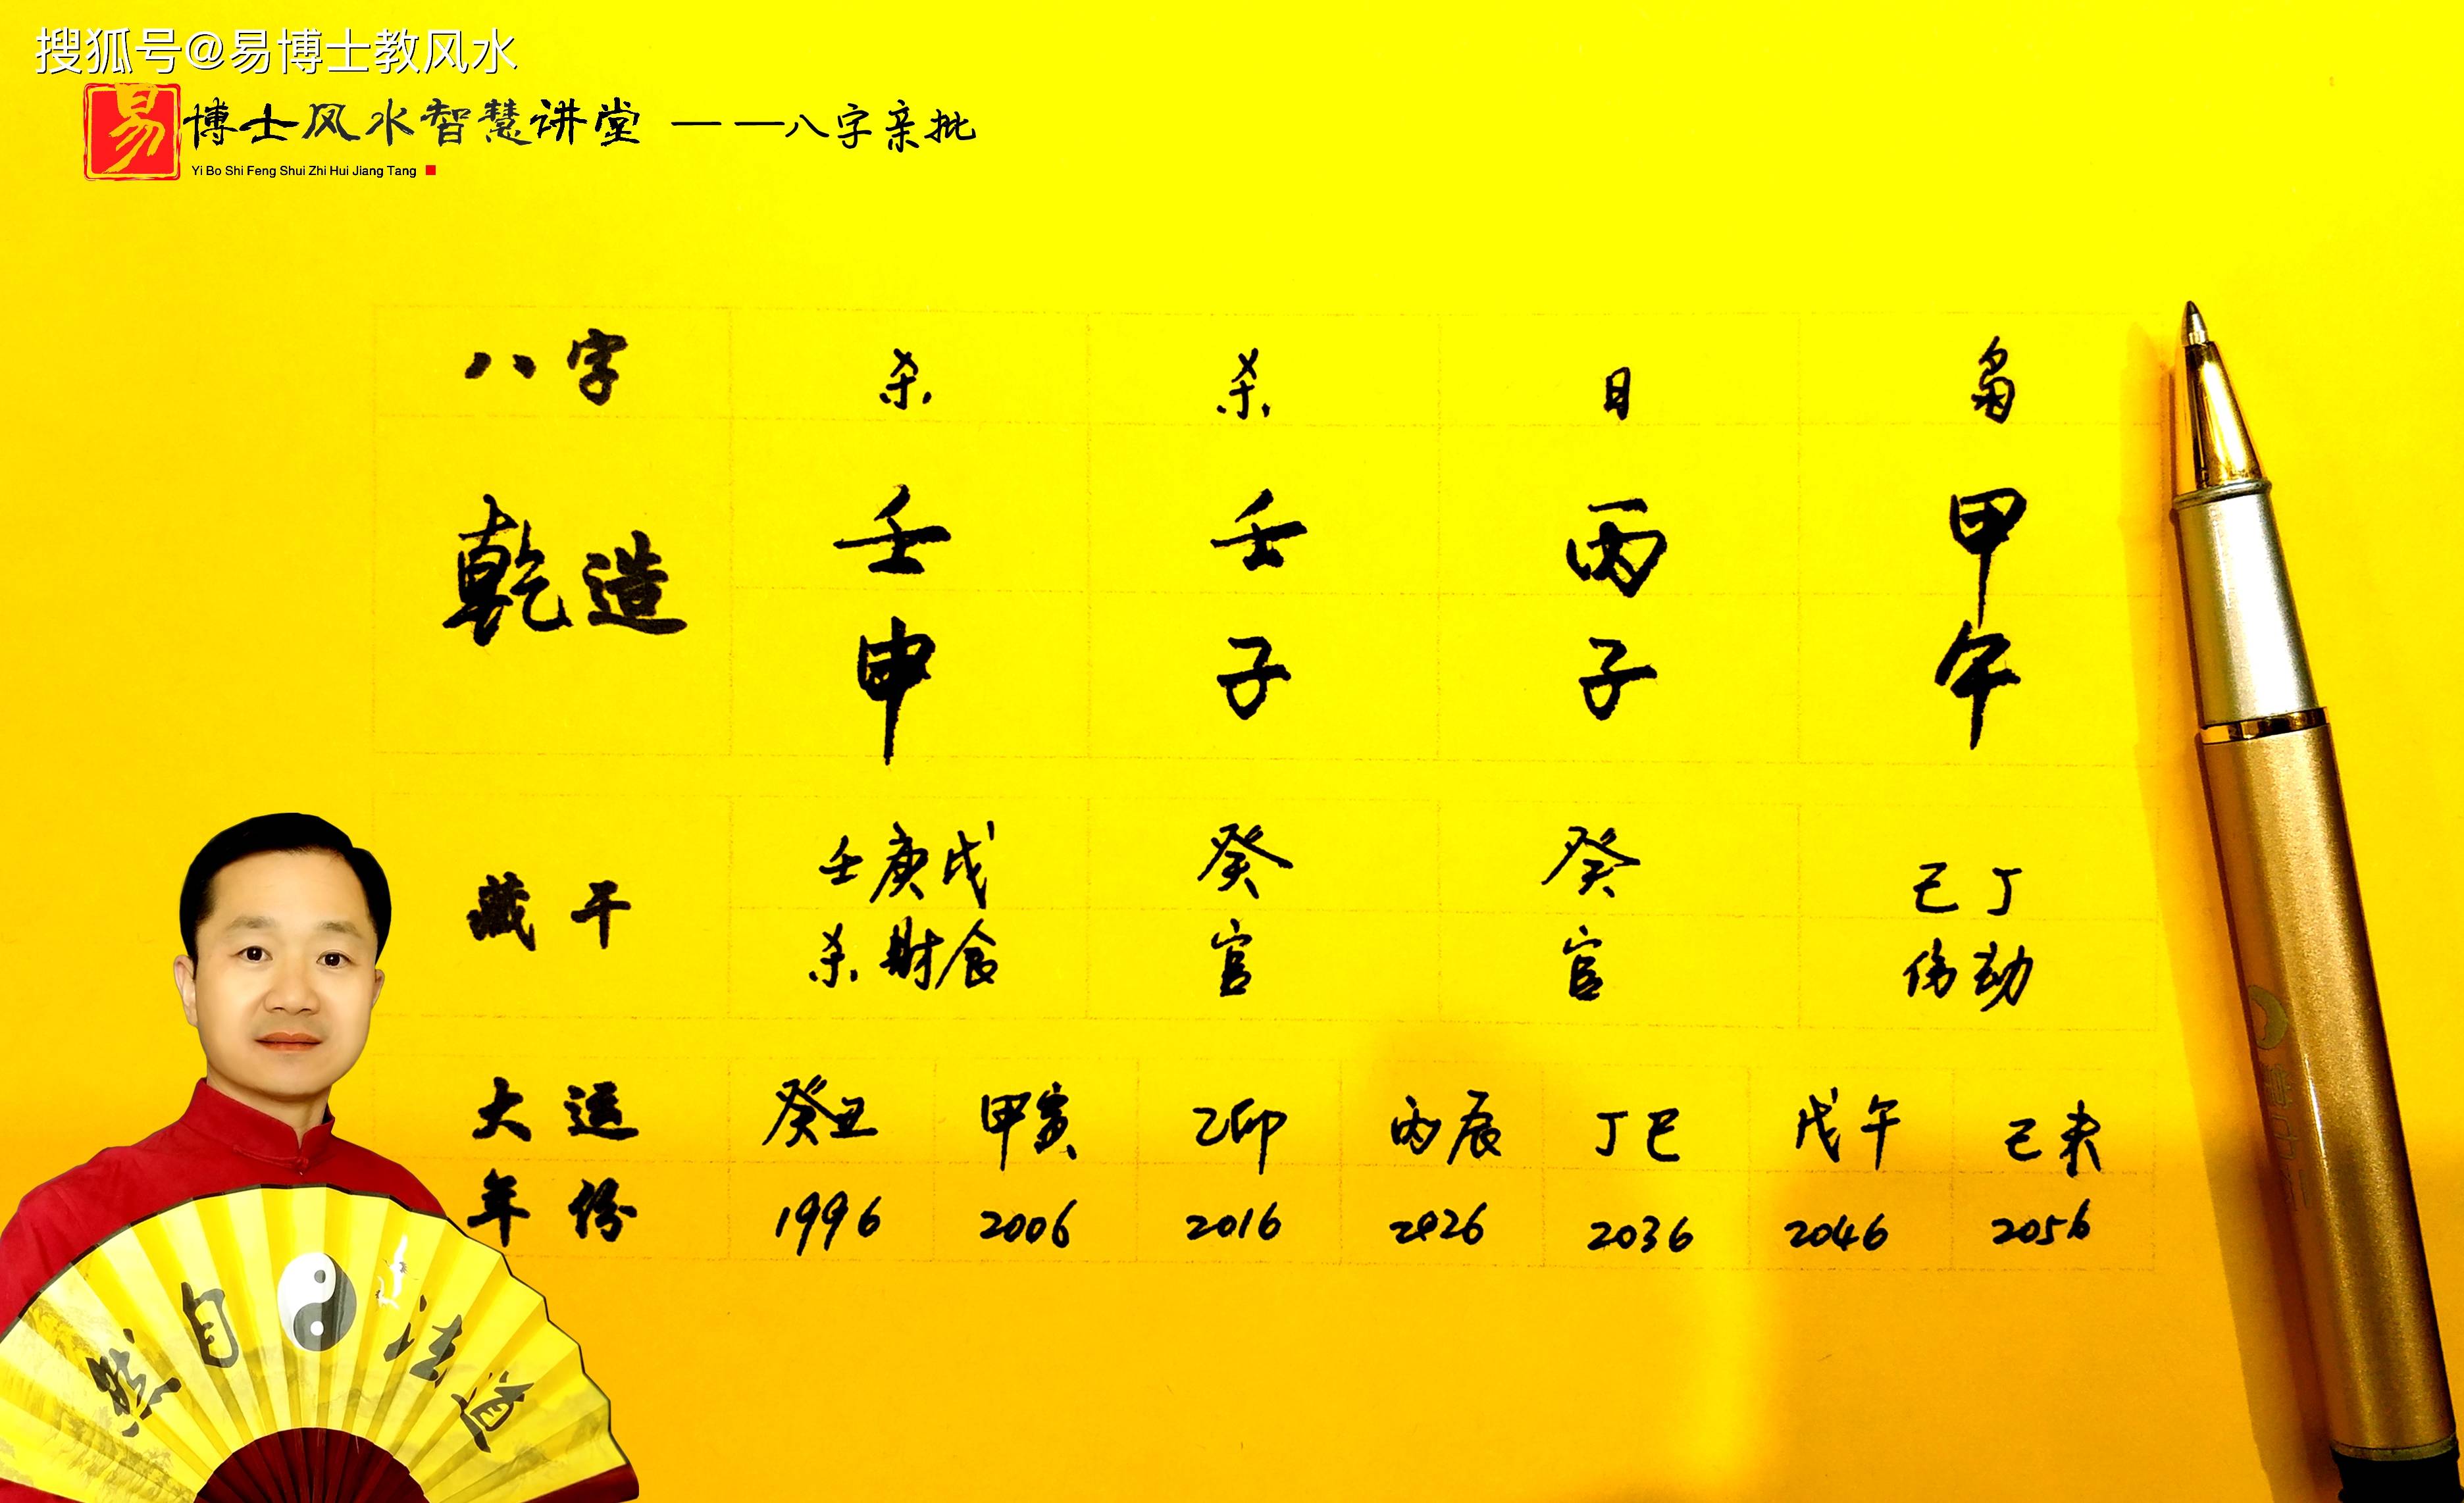 搜狐号@易博士教风水
易博士风水智慧讲堂 ——八字亲批
Yi Bo Shi Feng Shui Zhi Hui Jiang Tang
八字 杀 杀 日 枭
乾造 壬 壬 丙 甲
申 子 子 午
藏干 壬庚戊 癸 癸 己丁
杀财食 官 官 伤劫
大运 癸丑 甲寅 乙卯 丙辰 丁巳 戊午 己未
年份 1996 2006 2016 2026 2036 2046 2056
然自法道